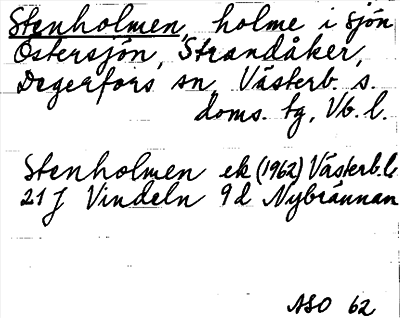 Stenholmen, holme i sjön
Östersjön, Strandåker,
Degerfors sn, Västerb. s.
doms. tg, Vb. l.
Stenholmen ek (1962) Västerb. l
21 J Vindeln 9 d Nybrännan
ASO 62